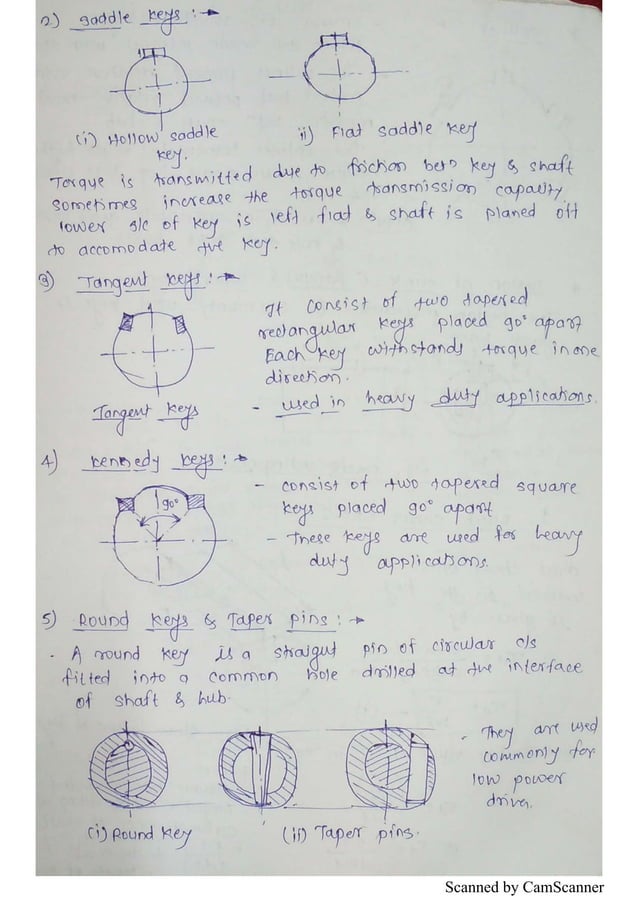 2) saddle keys :→
(i) Hollow saddle
key.
ii) Flat saddle key
Torque is transmitted due to friction betn key & shaft
sometimes increase the torque transmission capacity,
lower s/c of key is left flat & shaft is planed off
to accomodate the key.
3) Tangent keys :→
It consist of two tapered
rectangular keys placed 90° apart
Each key withstands torque in one
direction.
- used in heavy duty applications.
Tangent keys
4) kennedy keys :→
90°
- consist of two tapered square
keys placed 90° apart
- These keys are used for heavy
duty applications.
5) Round keys & Taper pins :→
- A round key is a straigut pin of circular c/s
fitted into a common hole drilled at the interface
of shaft & hub.
- They are used
commonly for
low power
drives.
(i) Round key
(ii) Taper pins.
Scanned by CamScanner